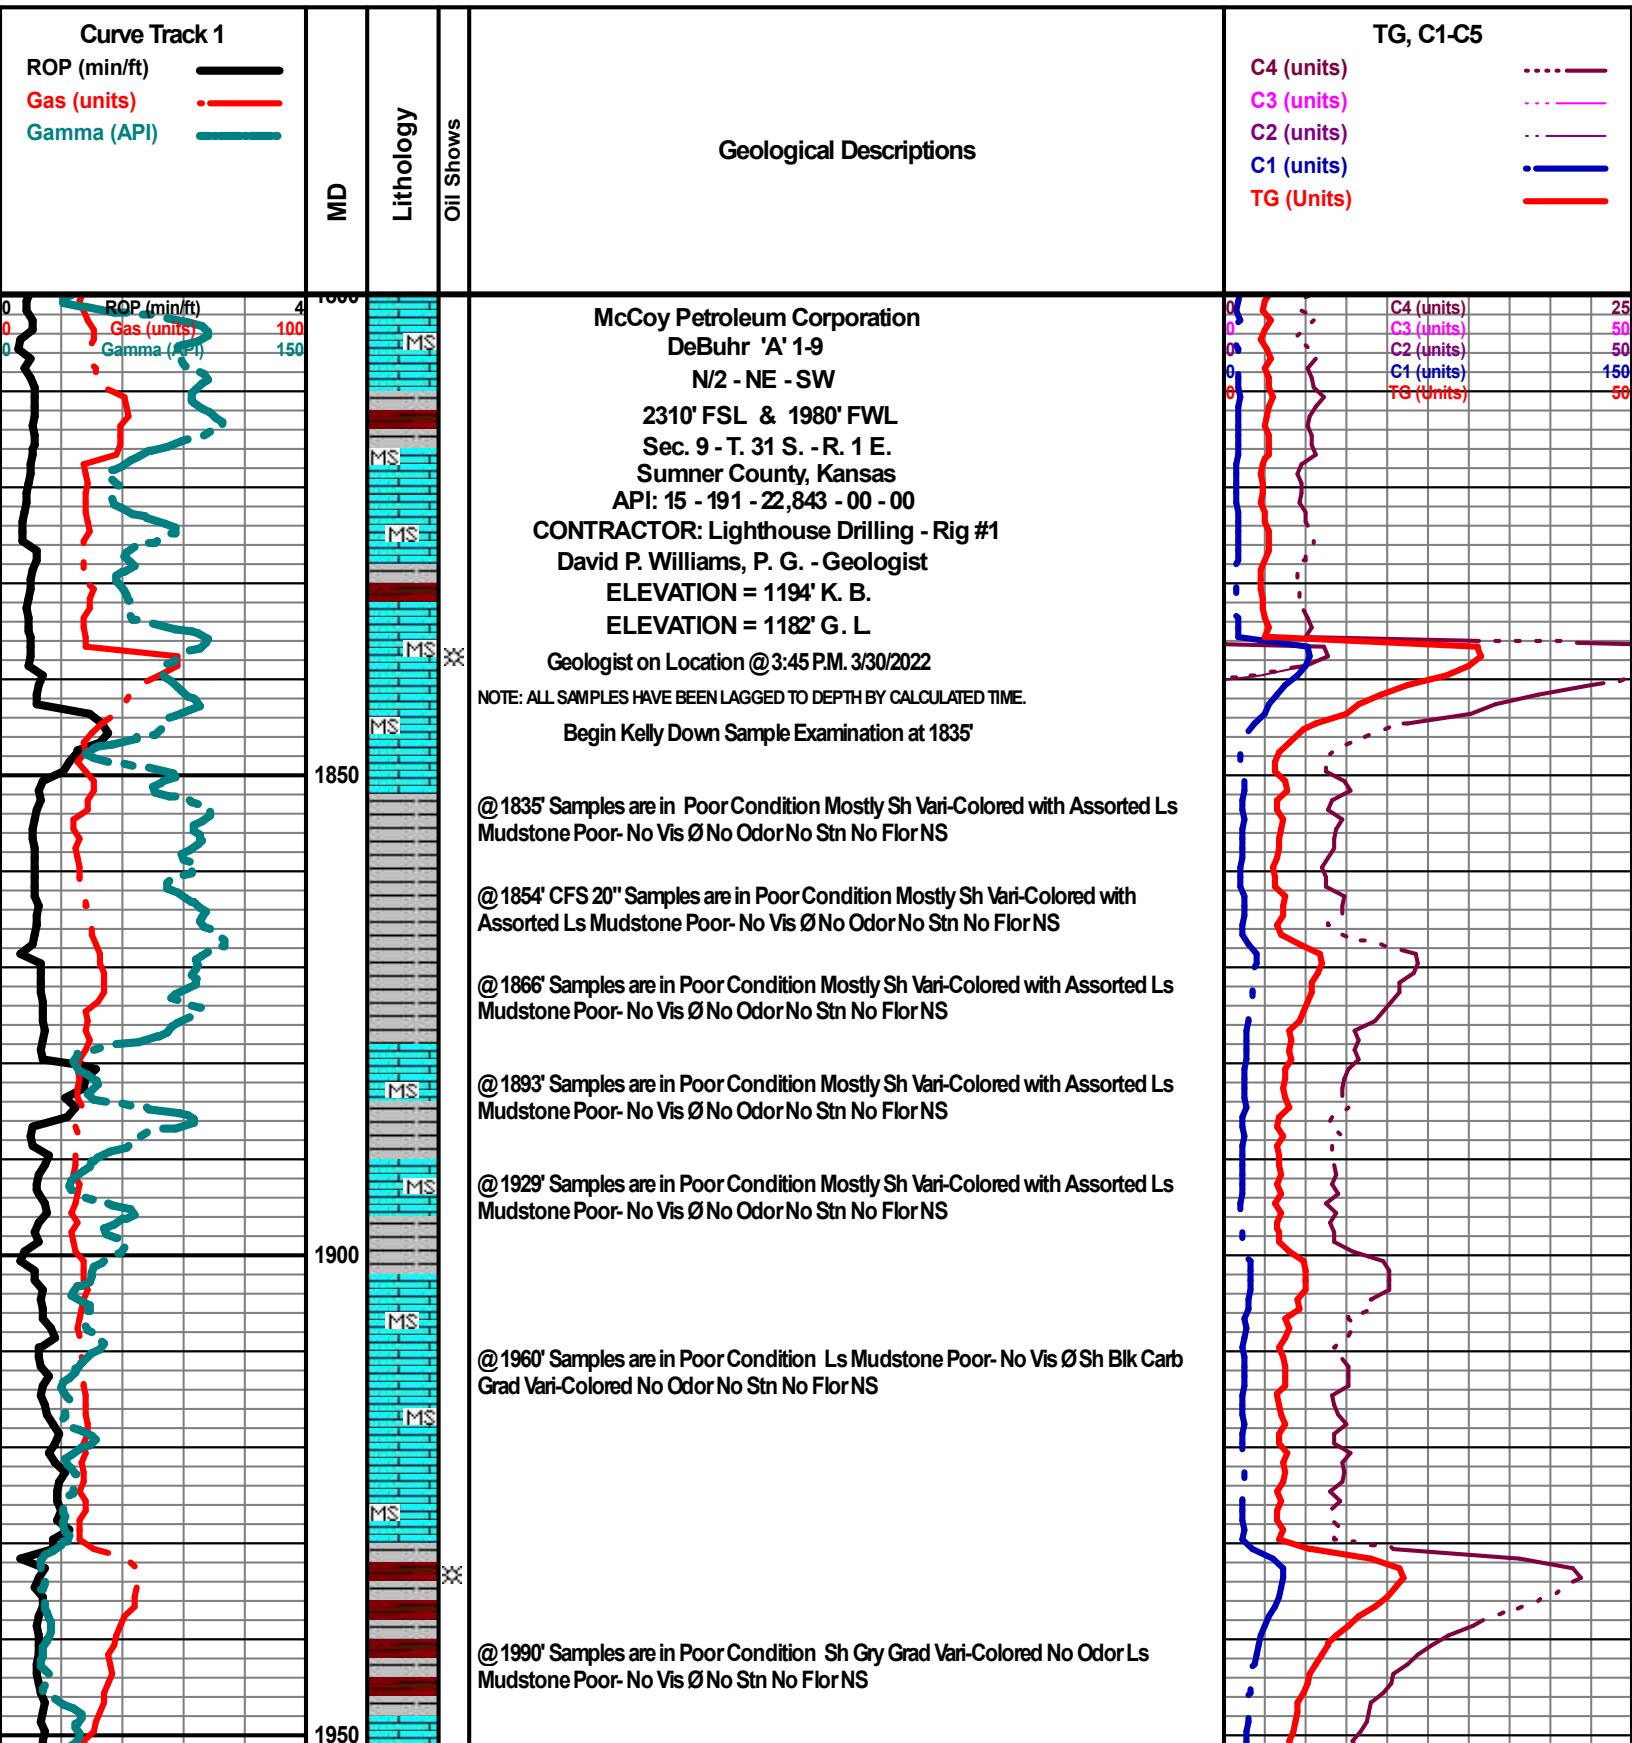 Curve Track 1
ROP (min/ft)
Gas (units)
Gamma (API)
MD
Lithology
Oil Shows
Geological Descriptions
TG, C1-C5
C4 (units)
C3 (units)
C2 (units)
C1 (units)
TG (Units)
0 ROP (min/ft) 4
0 Gas (units) 100
0 Gamma (API) 150
1800
0 C4 (units) 25
0 C3 (units) 50
0 C2 (units) 50
0 C1 (units) 150
0 TG (Units) 50
McCoy Petroleum Corporation
DeBuhr 'A' 1-9
N/2 - NE - SW
2310' FSL & 1980' FWL
Sec. 9 - T. 31 S. - R. 1 E.
Sumner County, Kansas
API: 15 - 191 - 22,843 - 00 - 00
CONTRACTOR: Lighthouse Drilling - Rig #1
David P. Williams, P. G. - Geologist
ELEVATION = 1194' K. B.
ELEVATION = 1182' G. L.
Geologist on Location @ 3:45 P.M. 3/30/2022
NOTE: ALL SAMPLES HAVE BEEN LAGGED TO DEPTH BY CALCULATED TIME.
Begin Kelly Down Sample Examination at 1835'
MS
MS
MS
MS
MS
1850
@ 1835' Samples are in Poor Condition Mostly Sh Vari-Colored with Assorted Ls
Mudstone Poor- No Vis Ø No Odor No Stn No Flor NS
@ 1854' CFS 20" Samples are in Poor Condition Mostly Sh Vari-Colored with
Assorted Ls Mudstone Poor- No Vis Ø No Odor No Stn No Flor NS
@ 1866' Samples are in Poor Condition Mostly Sh Vari-Colored with Assorted Ls
Mudstone Poor- No Vis Ø No Odor No Stn No Flor NS
MS
@ 1893' Samples are in Poor Condition Mostly Sh Vari-Colored with Assorted Ls
Mudstone Poor- No Vis Ø No Odor No Stn No Flor NS
MS
@ 1929' Samples are in Poor Condition Mostly Sh Vari-Colored with Assorted Ls
Mudstone Poor- No Vis Ø No Odor No Stn No Flor NS
1900
MS
@ 1960' Samples are in Poor Condition Ls Mudstone Poor- No Vis Ø Sh Blk Carb
Grad Vari-Colored No Odor No Stn No Flor NS
MS
MS
@ 1990' Samples are in Poor Condition Sh Gry Grad Vari-Colored No Odor Ls
Mudstone Poor- No Vis Ø No Stn No Flor NS
1950